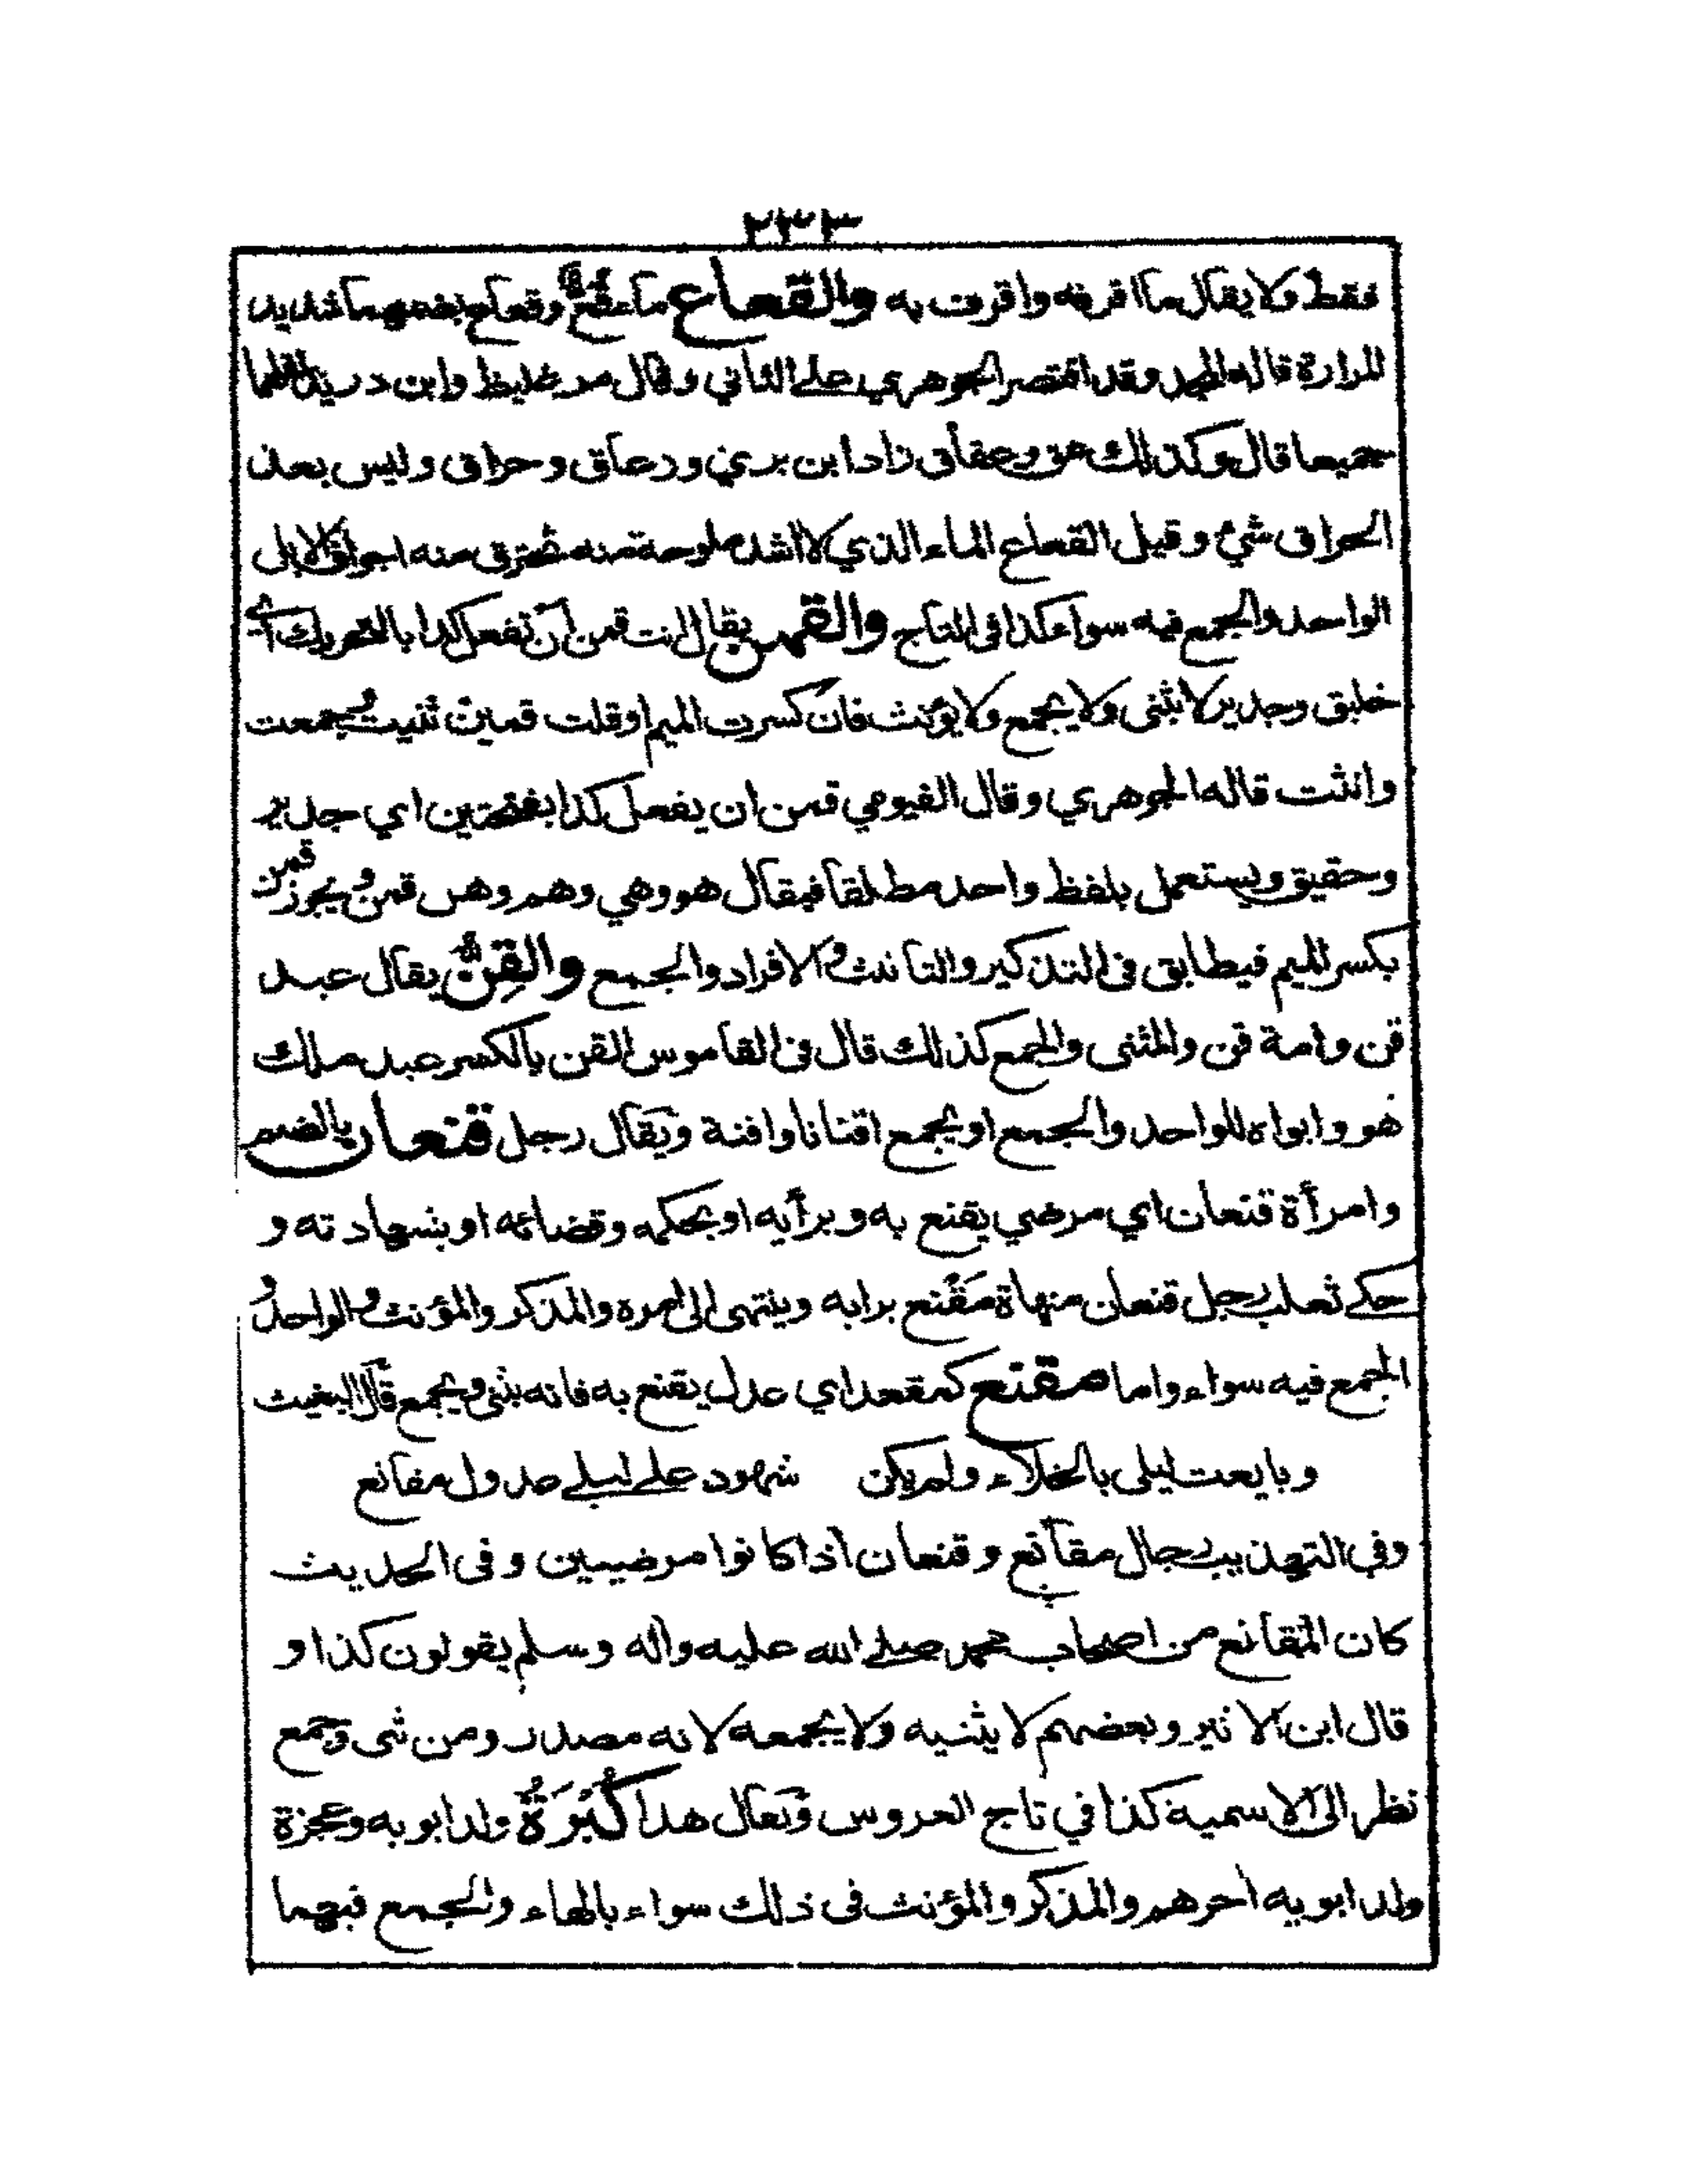 ٢٣٣
فقط ولا يقال ما اقرفه واقرف به والقعاع ماء قع وقعاع بضمهما شديد
المرارة قاله المجد وقد اقتصر الجوهري على الثاني وقال مر غليظ وابن دريد
جميعا قال وكذلك عق وعقاق زاد ابن بري وزعاق وحراق وليس بعد
الحراق شئ وقيل القعاع الماء الذي لا اشد ملوحة منه تحترق منه اجواف الابل
الواحد والجمع فيه سواء كذا فى التاج والقمن يقال انت قمن ان تفعل كذا بالتحريك اي
خليق وجدير لا يثنى ولا يجمع ولا يؤنث فان كسرت الميم او قلت قمين ثنيت وجمعت
وانثت قاله الجوهري وقال الفيومي قمن ان يفعل كذا بفتحتين اي جدير
وحقيق ويستعمل بلفظ واحد مطلقا فيقال هو وهي وهم وهن قمن ويجوز قمن
بكسر الميم فيطابق فى التذكير والتانيث والافراد والجمع والقِنّ يقال عبد
قن وامة قن والمثنى والجمع كذلك قال فى القاموس القن بالكسر عبد ملك
هو وابواه للواحد والجمع او يجمع اقنانا واقنة ويقال رجل قنعان بالضم
وامرأة قنعان اي مرضي يقنع به وبرأيه او بحكمه وقضائه او بشهادته و
حكے ثعلب رجل قنعان منهاة مَقْنع برايه وينتهى الى امره والمذكر والمؤنث والواحد و
الجمع فيه سواء واما مقنع كمقعد اي عدل يقنع به فانه يثنى ويجمع قال البعيث
وبايعت ليلى بالخلاء ولم يكن شهود علے ليلے عدول مقانع
وفي التهذيب رجال مقانع وقنعان اذا كانوا مرضيين وفى الحديث
كان المقانع من اصحاب محمد صلے الله عليه وآله وسلم يقولون كذا و
قال ابن الاثير وبعضهم لا يثنيه ولا يجمعه لانه مصدر ومن ثنى وجمع
نظر الى الاسمية كذا في تاج العروس ويقال هذا كُبْرَةُ ولد ابويه وعجزة
ولد ابويه آخرهم والمذكر والمؤنث فى ذلك سواء بالهاء والجمع فيهما